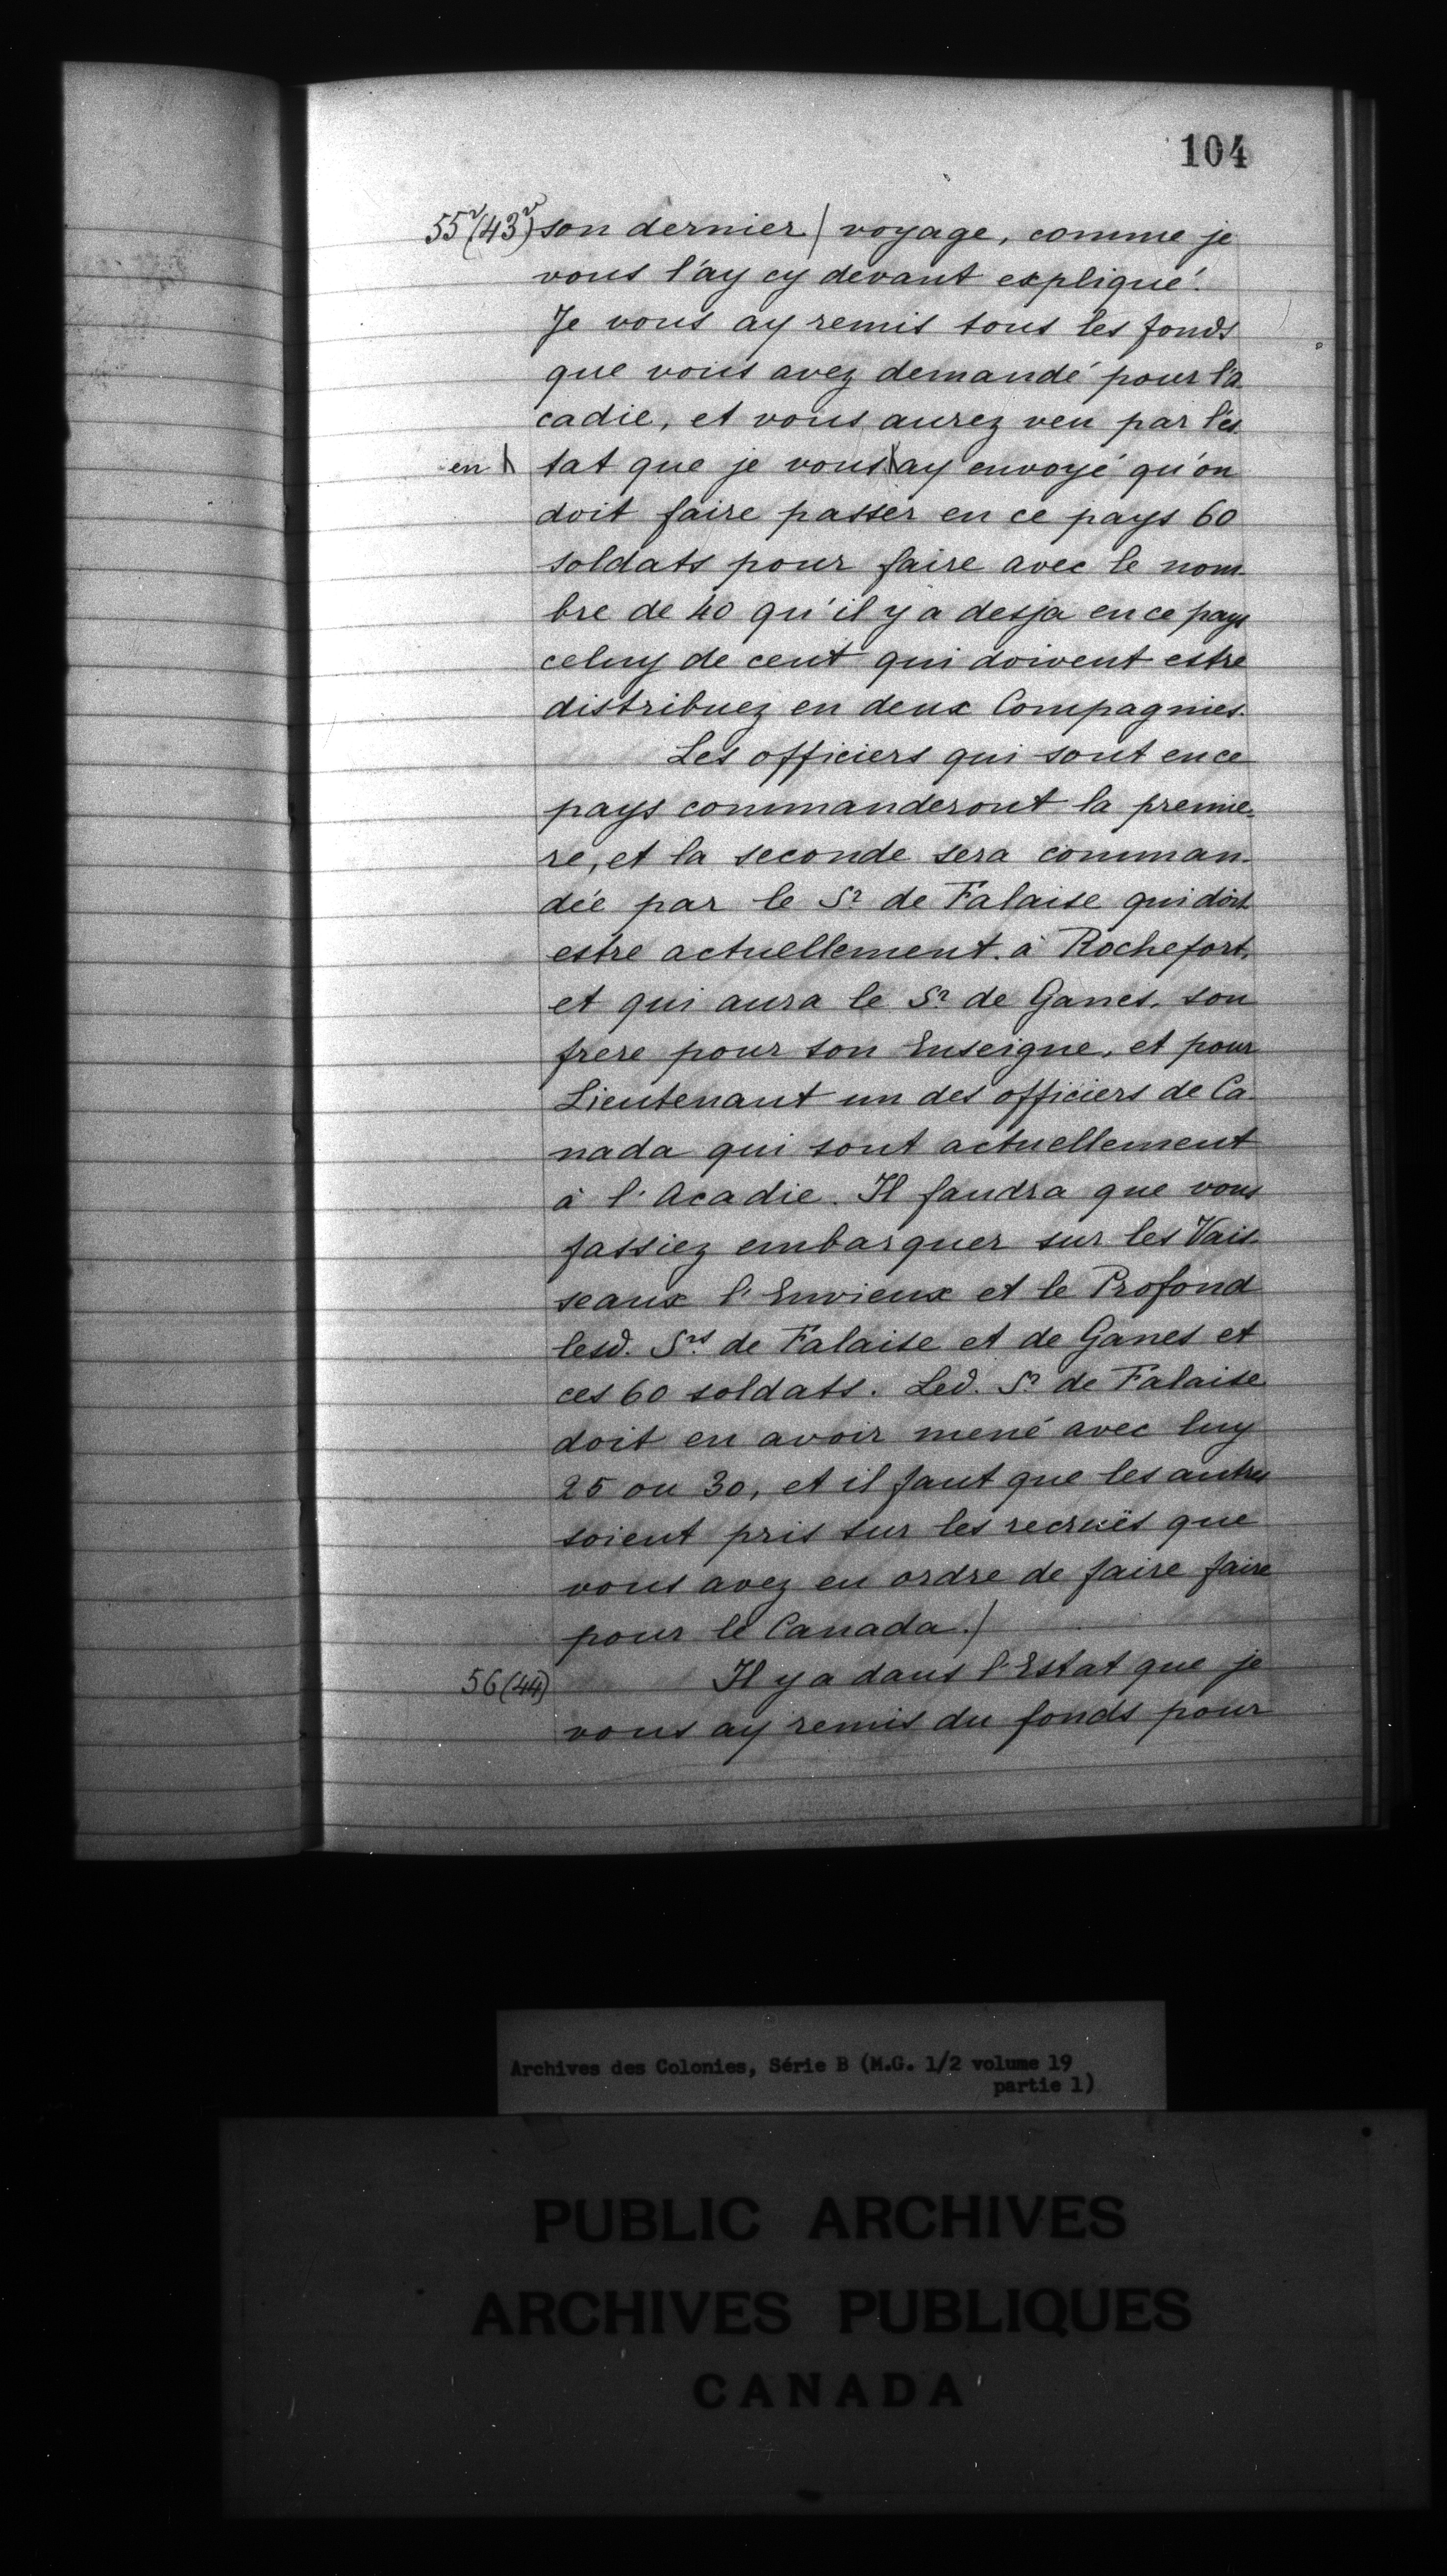 104
55v (43v) son dernier / voyage, comme je
vous l'ay cy devant expliqué.
Je vous ay remis tous les fonds
que vous avez demandé pour l'a
cadie, et vous aurez veu par l'es
en tat que je vous ay envoyé qu'on
doit faire passer en ce pays 60
soldats pour faire avec le nom-
bre de 40 qu'il y a desja en ce pays
celuy de cent qui doivent estre
distribuez en deux Compagnies.
Les officiers qui sont en ce
pays commanderont la premie-
re, et la seconde sera comman-
dée par le Sr de Falaise qui doit
estre actuellement à Rochefort,
et qui aura le Sr de Ganes, son
frere pour son Enseigne, et pour
Lieutenant un des officiers de Ca-
nada qui sont actuellement
à l'Acadie. Il faudra que vous
fassiez embarquer sur les Vais-
seaux l'Envieux et le Profond
lesd. Srs de Falaise et de Ganes et
ces 60 soldats. Led. Sr de Falaise
doit en avoir mené avec luy
25 ou 30, et il faut que les autres
soient pris sur les recruës que
vous avez eu ordre de faire faire
pour le Canada./
56 (44) Il y a dans l'Estat que je
vous ay remis du fonds pour
Archives des Colonies, Série B (M.G. 1/2 volume 19
partie 1)
PUBLIC ARCHIVES
ARCHIVES PUBLIQUES
CANADA